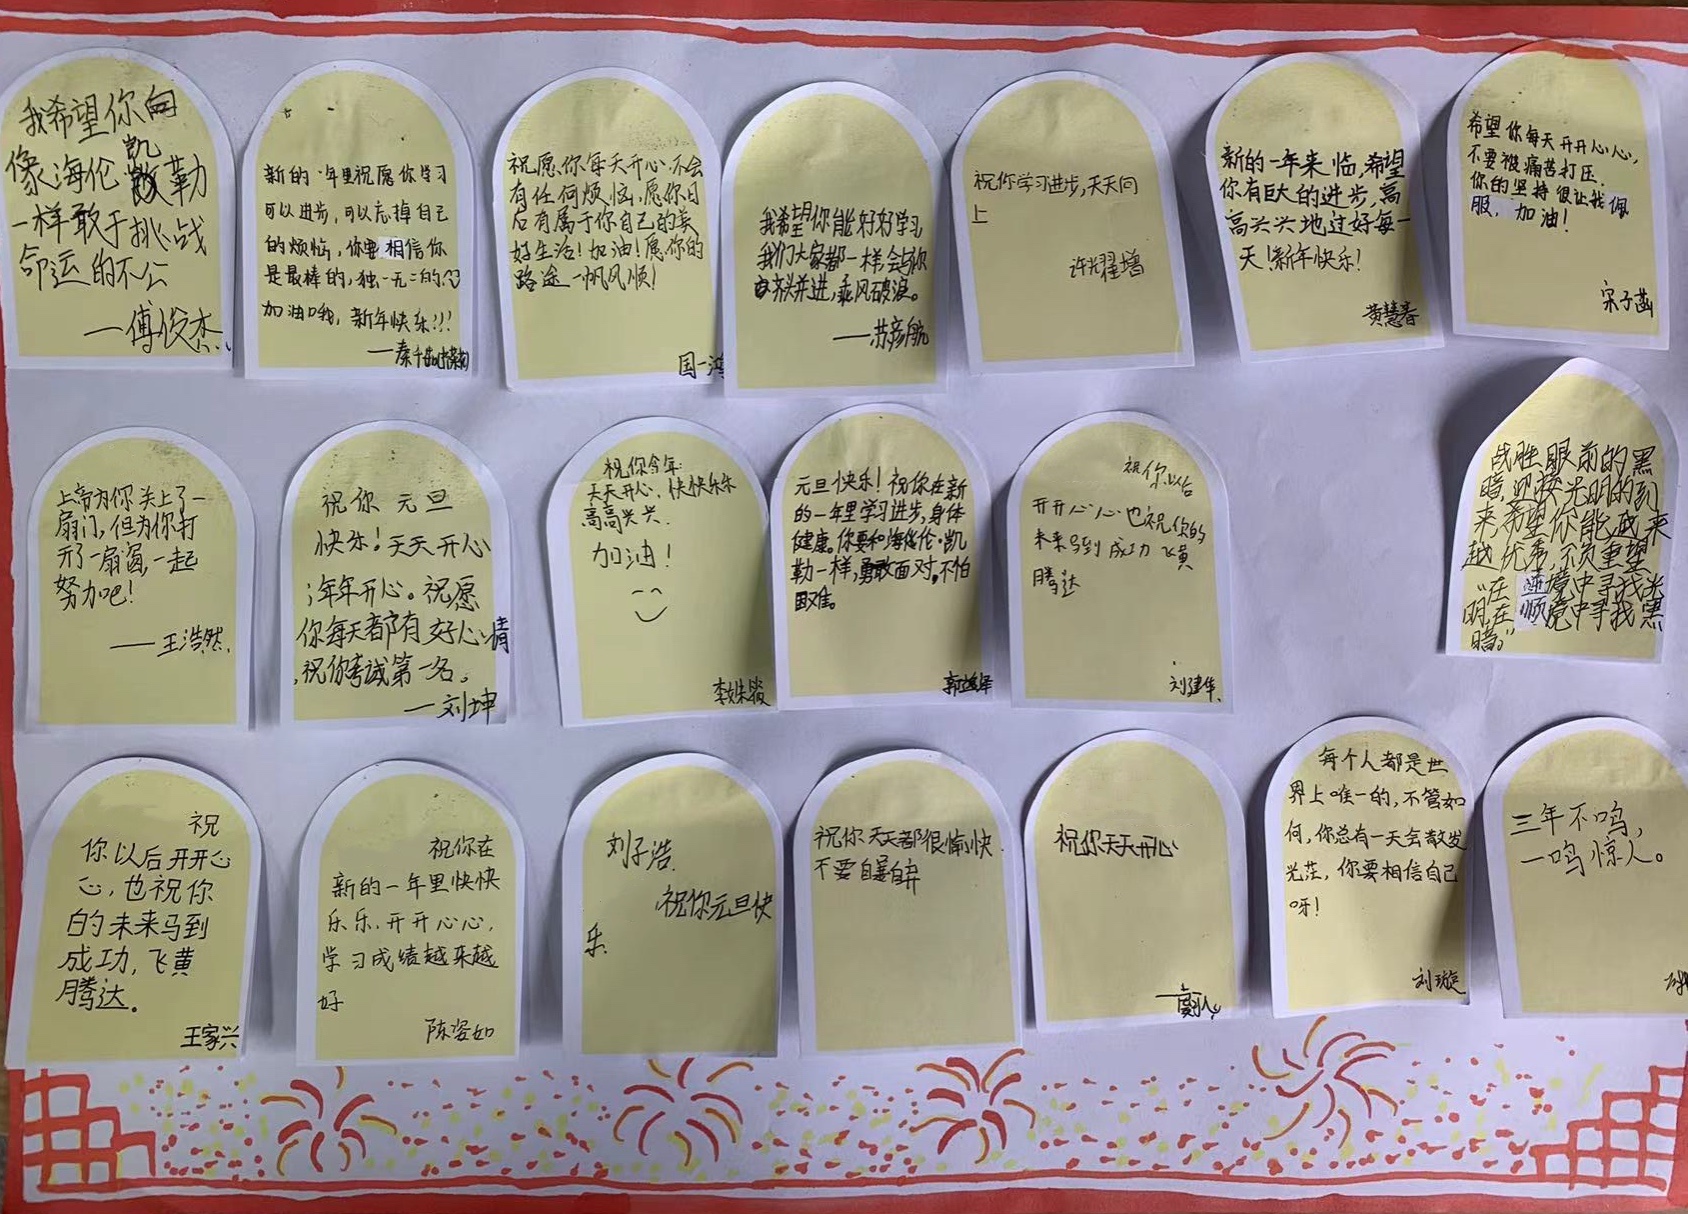 我希望你向
像海伦凯勒
一样敢于挑战
命运的不公
—傅俊杰
新的一年里祝愿你学习
可以进步,可以忘掉自己
的烦恼,你要相信你
是最棒的,独一无二的
加油哦,新年快乐!!!
祝愿你每天开心不会
有任何烦恼,愿你日
后有属于你自己的美
好生活!加油!愿你的
路途一帆风顺!
国一鸿
我希望你能好好学习
我们大家都一样会与你
齐头并进,乘风破浪。
——苏彦航
祝你学习进步,天天向
上
许耀增
新的一年来临,希望
你有巨大的进步,高
高兴兴地过好每一
天!新年快乐!
黄慧春
希望你每天开开心心,
不要被痛苦打压.
你的坚持很让我佩
服,加油!
宋子菡
上帝为你关上了一
扇门,但为你打
开了一扇窗,一起
努力吧!
——王浩然.
祝你元旦
快乐!天天开心
;年年开心。祝愿
你每天都有好心情
,祝你考试第一名。
—刘坤
祝你今年
天天开心,快快乐乐
高高兴兴.
加油!
元旦快乐!祝你在新
的一年里学习进步,身体
健康。你要和海伦·凯
勒一样,勇敢面对,不怕
困难。
祝你以后
开开心心也祝你的
未来马到成功飞黄
腾达
刘建华.
战胜眼前的黑
暗,迎接光明的到
来,希望你能越来
越优秀,不负重望
“在逆境中寻找光
明,在顺境中寻找黑
暗”
祝
你以后开开心
心,也祝你
的未来马到
成功,飞黄
腾达.
王家兴
祝你在
新的一年里快快
乐乐.开开心心,
学习成绩越来越
好
陈姿如
刘子浩.
祝你元旦快
乐.
祝你天天都很愉快
不要自暴自弃
祝你天天开心
每个人都是世
界上唯一的,不管如
何,你总有一天会散发
光茫,你要相信自己
呀!
刘璇
三年不鸣,
一鸣惊人。